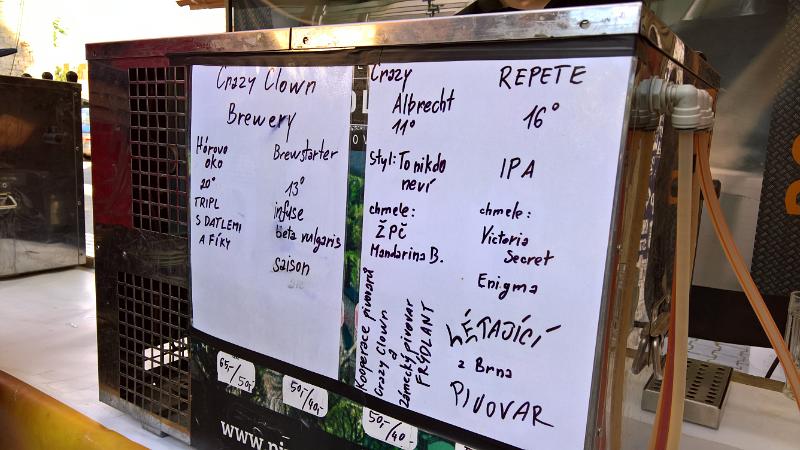 Crazy Clown
Brewery
Hórovo
oko
20°
TRIPL
S DATLEMI
A FÍKY
Brewstarter
13°
infuse
beta vulgaris
saison
65,-/50,-
50,-/40,-
Crazy
Albrecht
11°
Styl: To nikdo
neví
chmele:
ŽPČ
Mandarina B.
Kooperace pivovarů
Crazy Clown
a
Zámecký pivovar
FRÝDLANT
50,-/40,-
REPETE
16°
IPA
chmele:
Victoria
Secret
Enigma
LÉTAJÍCÍ
z Brna
PIVOVAR